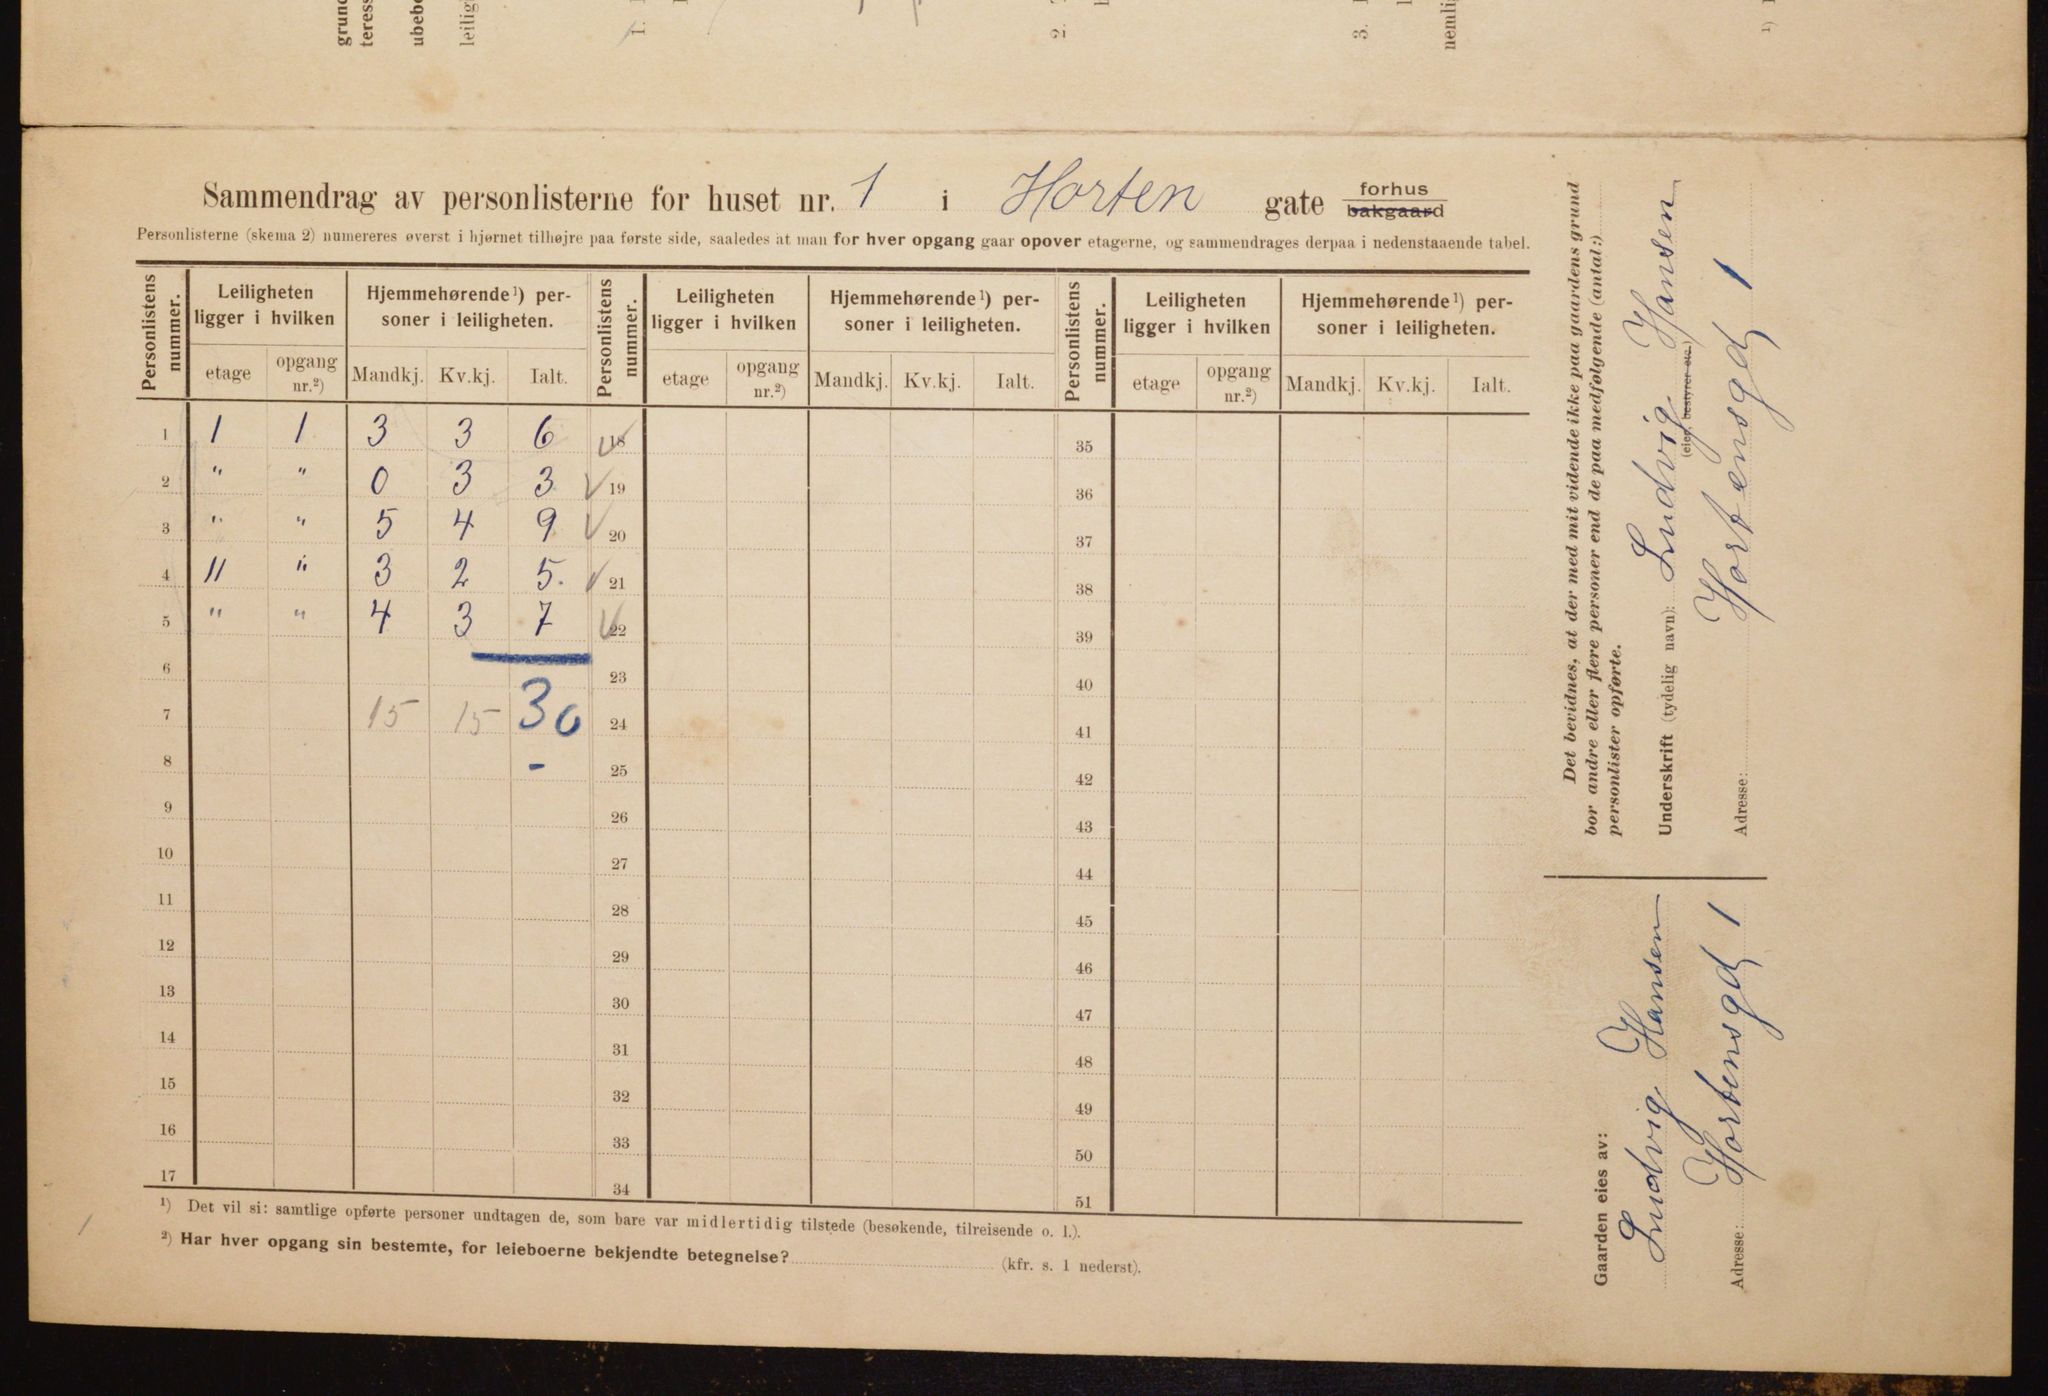 Sammendrag av personlisterne for huset nr. 1 i Horten gate forhus bakgaard
Personlisterne (skema 2) numereres øverst i hjørnet tilhøjre paa første side, saaledes at man for hver opgang gaar opover etagerne, og sammendrages derpaa i nedenstaaende tabel.
Personlistens nummer. Leiligheten ligger i hvilken Hjemmehørende ¹) personer i leiligheten. Personlistens nummer. Leiligheten ligger i hvilken Hjemmehørende ¹) personer i leiligheten. Personlistens nummer. Leiligheten ligger i hvilken Hjemmehørende ¹) personer i leiligheten.
etage opgang nr.²) Mandkj. Kv.kj. Ialt. etage opgang nr.²) Mandkj. Kv.kj. Ialt. etage opgang nr.²) Mandkj. Kv.kj. Ialt.
1 1 1 3 3 6 18 35
2 " " 0 3 3 19 36
3 " " 5 4 9 20 37
4 11 " 3 2 5. 21 38
5 " " 4 3 7 22 39
6 23 40
7 15 15 30 24 41
8 - 25 42
9 26 43
10 27 44
11 28 45
12 29 46
13 30 47
14 31 48
15 32 49
16 33 50
17 34 51
¹) Det vil si: samtlige opførte personer undtagen de, som bare var midlertidig tilstede (besøkende, tilreisende o. l.).
²) Har hver opgang sin bestemte, for leieboerne bekjendte betegnelse? (kfr. s. 1 nederst).
Det bevidnes, at der med mit vidende ikke paa gaardens grund
bor andre eller flere personer end de paa medfølgende (antal:)
personlister opførte.
Underskrift (tydelig navn): Ludvig Hansen
(eier, bestyrer etc.)
Adresse: Hortensgd 1
Gaarden eies av:
Ludvig Hansen
Adresse: Hortensgd 1